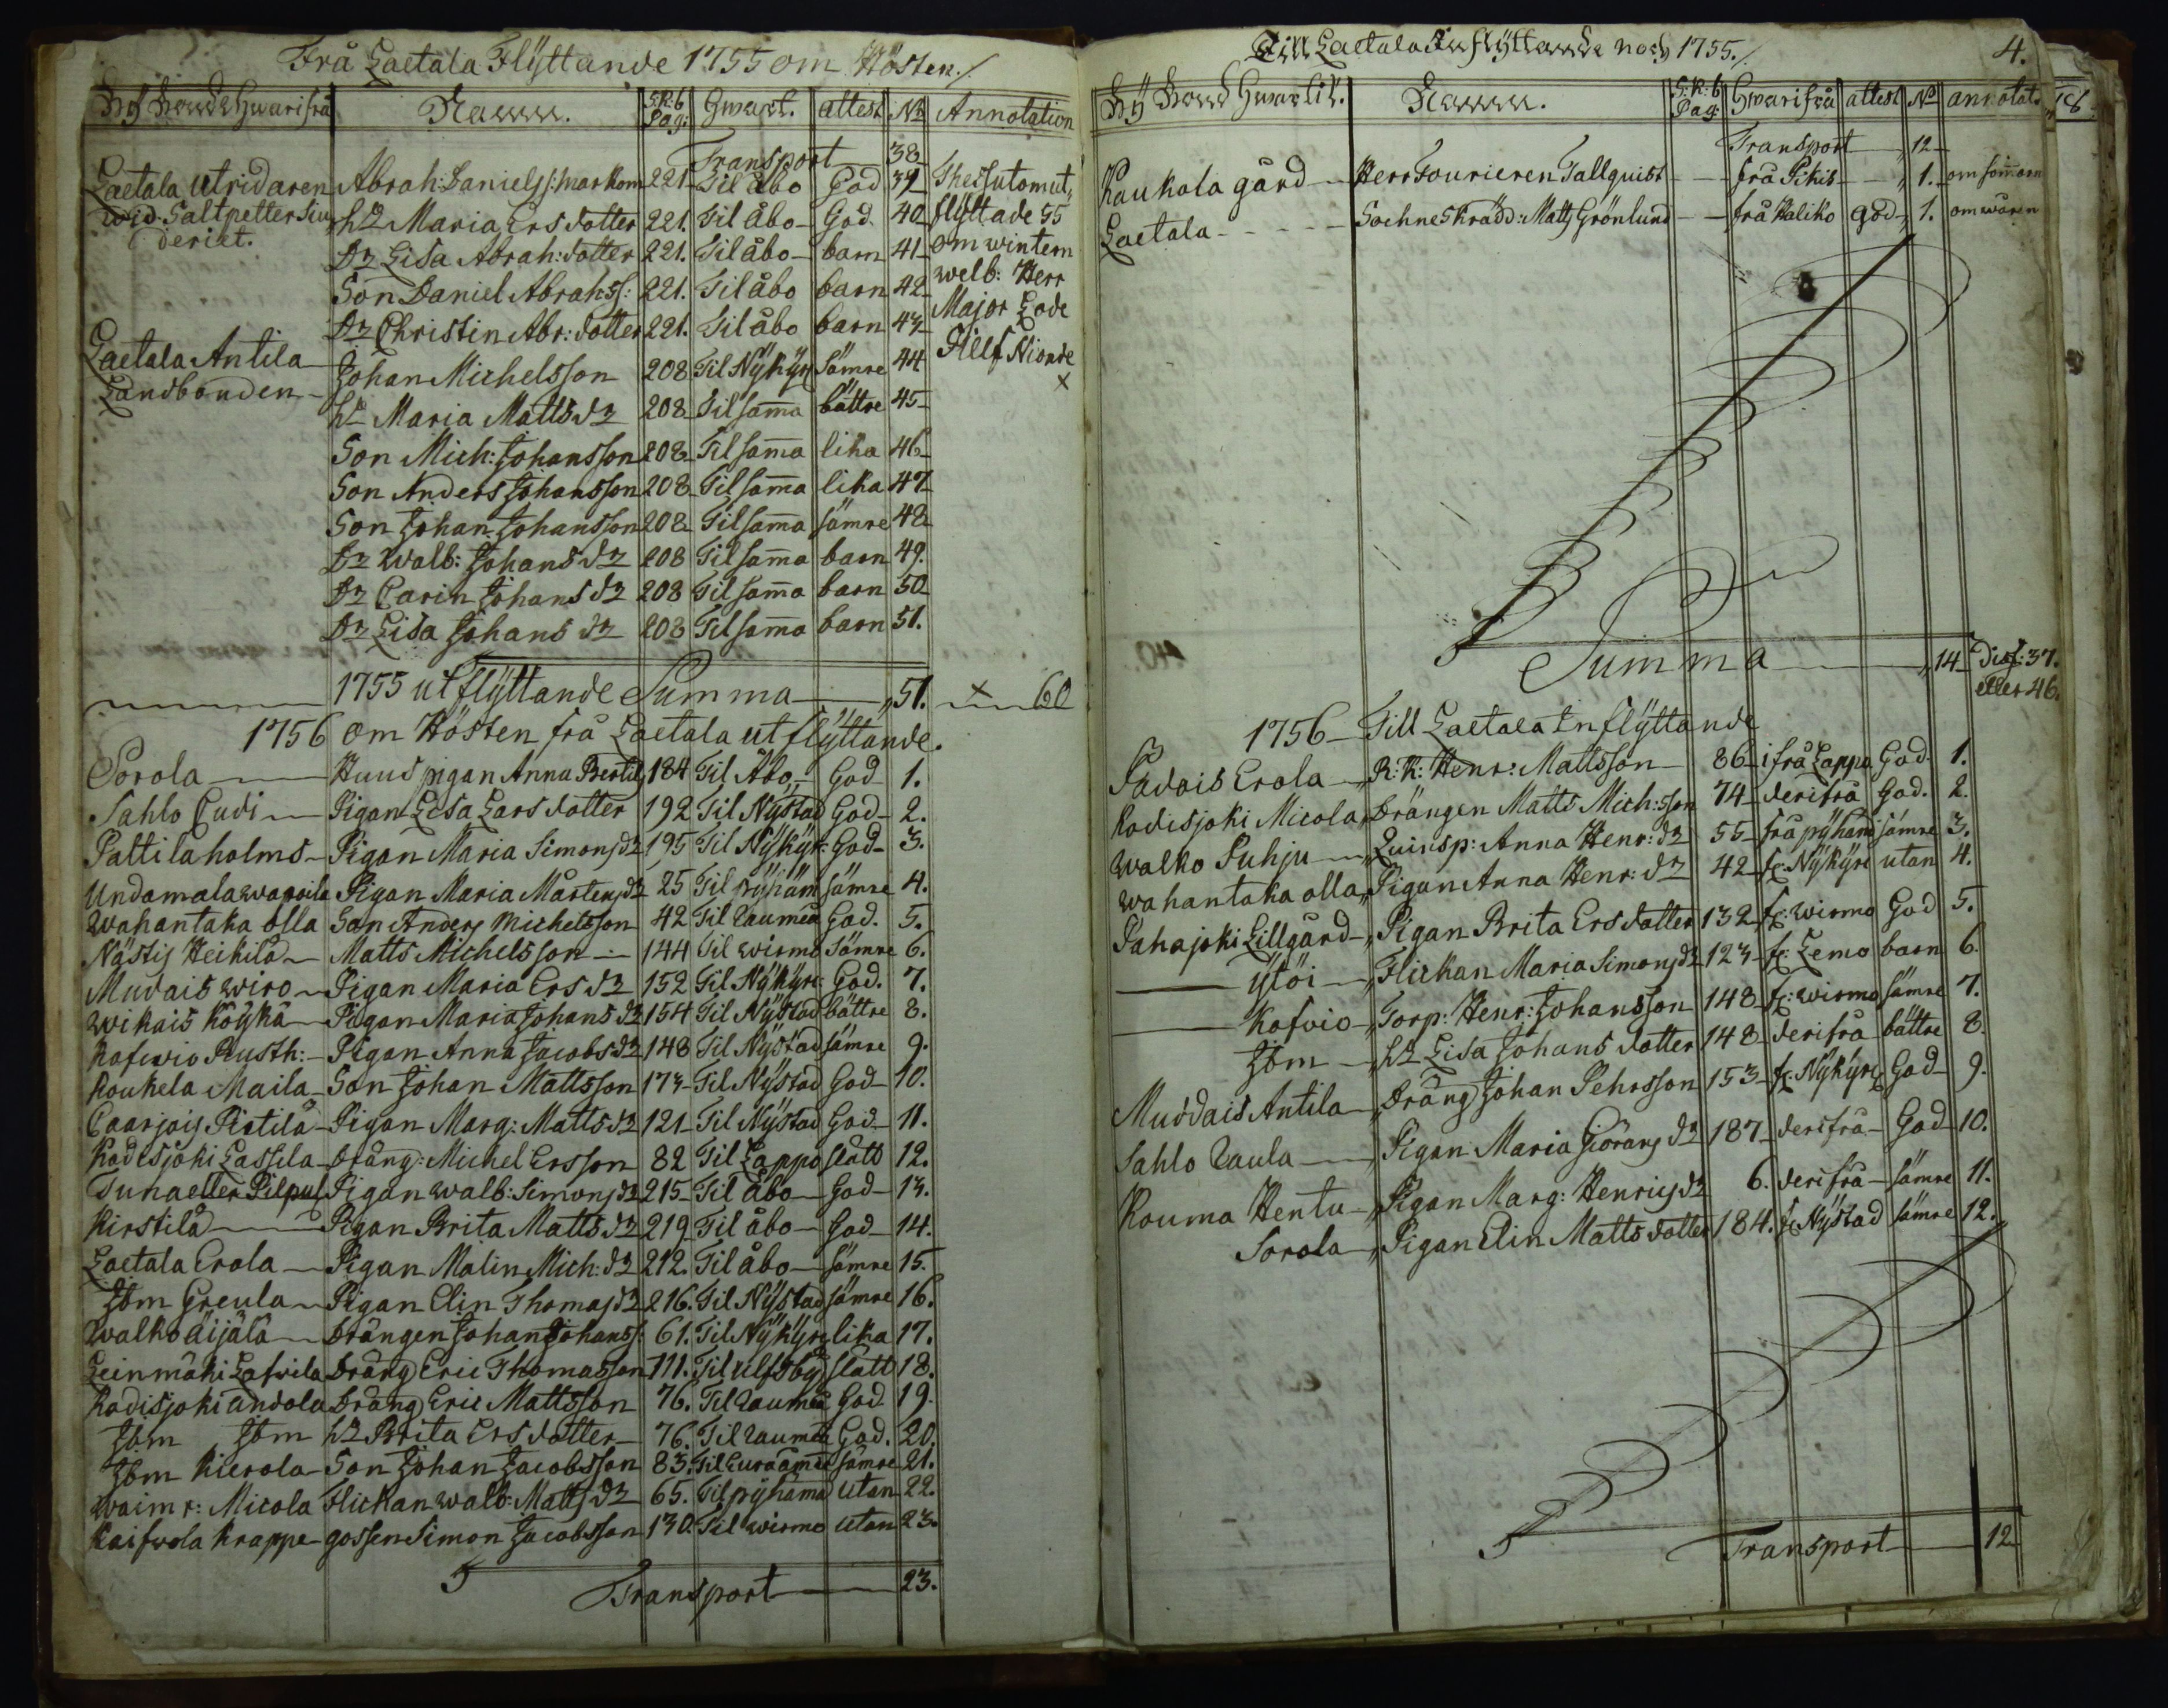 Frå Laetala Flÿttande 1755 om Hösten./
By Hwarifrå | Namn. | S.K.b Pag: | Hwart. | attest | No | Annotation
Transport 38
Laetala Utridaren | Abrah: Daniels: Markom | 221 | Til åbo | God | 39 | Thessutom ut
wid Saltpetter Siu | h: Maria Ers dotter | 221. | Til åbo | God | 40 | flÿttade 55
deriet. | Dr Lisa Abrah: dotter | 221. | Til åbo | barn | 41 | om wintern
Son Daniel Abrahss: | 221. | Til åbo | barn | 42 | welb: Herr
Dr Christin Abr: dotter | 221. | Til åbo | barn | 43 | Major Lode
Laetala Antila | Johan Michelsson | 208 | Til Nÿkÿr | sämre | 44 | Sielf Nionde
Landbonden | h: Maria Matts dr | 208 | Til sama | bättre | 45 | x
Son Mich: Johansson | 208 | Til sama | lika | 46
Son Anders Johansson | 208 | Til sama | lika | 47
Son Johan Johansson | 208 | Til sama | sämre | 48
Dr Walb: Johans dr | 208 | Til sama | barn | 49.
Dr Carin Johans dr | 208 | Til sama | barn | 50
Dr Lisa Johans dr | 208 | Til sama | barn | 51.
1755 utflÿttande Summa 51. x 60
1756 om Hösten frå Laetala utflÿttande.
Sorola | Huus pigan Anna Bertil | 184 | Til Åbo | God | 1.
Sahlo Cudi | Pigan Lisa Lars dotter | 192 | Til Nÿstad | God | 2.
Pattila holms | Pigan Maria Simons dr | 195 | Til Nÿkÿr: | God | 3.
Undamala | Pigan Maria Mårtens dr | 25 | Til pÿhäm | sämre | 4.
Wahantaka olla | Son Anders Michelsson | 42 | Til Raumå | God. | 5.
Nästis Heikilä | Matts Michelsson | 144 | Til Wirmo | Sämre | 6.
Mudais wiro | Pigan Maria Ers dr | 152 | Til Nÿkÿrc | God. | 7.
Wikais Köÿkä | Pigan Maria Johans dr | 154 | Til Nÿstad | bättre | 8.
Kafwio Rusth: | Pigan Anna Jacobs dr | 148 | Til Nÿstad | sämre | 9.
Koukela Maila | Son Johan Mattsson | 173 | Til Nÿstad | God | 10.
Caarjois Pietilä | Pigan Marg: Matts dr | 121 | Til Nÿstad | God | 11.
Kodisjoki Lassila | dräng: Michel Ersson | 82 | Til Lappo | slätt | 12.
Tuna eller Pilpul | Pigan Walb: Simons dr | 215 | Til åbo | God | 13.
Kirstilä | Pigan Brita Matts dr | 219 | Til åbo | God | 14.
Laetala Erola | Pigan Malin Mich: dr | 212. | Til åbo | sämre | 15.
Ibm Greula | Pigan Elin Thomas dr | 216. | Til Nÿstad | sämre | 16.
Walko äijälä | Drängen Johan Johanss: | 61. | Til Nÿkÿrc | lika | 17.
Leinmäki Lafwila | Dräng Eric Thomasson | 111. | Til ulfsbÿ | slätt | 18.
Kodisjoki andola | Dräng Eric Mattsson | 76. | Til Raumå | God | 19.
Ibm Ibm | h: Brita Ers dotter | 76. | Til Raumå | God. | 20.
Ibm Kierola | Son Johan Jacobsson | 83. | Til Euraåmin | sämre | 21.
Waim r: Micola | Flickan Walb: Matts dr | 65. | Til pÿhämä | utan | 22.
Kaifwola Krappe | gossen Simon Jacobsson | 130. | Til wirmo | utan | 23.
Transport 23.
Till Laetala Inflÿttande 1755./
4.
By Hwartil. | Namn. | S:K:b Pag: | Hwarifrå | attest | No | annotat.
Transport 12
Kaukola gård | Herr Fourieren Tallquist | frå Pikis | 1. | om somaren
Laetala | Sochneskrädd: Matts Grönlund | frå Haliko | god | 1. | om wåren
Summa 14 | Diff: 37.
eller 46.
1756 Till Laetala Inflÿttande
Padois Erola | R:K: Henr: Mattsson | 86 | ifrå Lappo | God. | 1.
Kodisjoki Micola | Drängen Matts Mich:sson | 74 | derifrå | God. | 2.
Walko Suhju | Quinsp: Anna Henr: dr | 55 | frå pÿhäm | sämre | 3.
Wahantaka olla | Pigan Anna Henr: dr | 42 | fr: Nÿkÿrc | utan | 4.
Pahajoki Lillgård | Pigan Brita Ers dotter | 132 | fr: wirmo | God | 5.
ÿlöi | Flickan Maria Simons dr | 123 | fr: Lemo | barn | 6.
Kafvio | Torp: Henr: Johansson | 148 | fr: wirmo | sämre | 7.
Ibm | h: Lisa Johans dotter | 148 | derifrå | bättre | 8.
Muddais Antila | Dräng Johan Pehrsson | 153 | fr: Nÿkÿrc | God | 9.
Sahlo Raula | Pigan Maria Giörans dr | 187 | derifrå | God | 10.
Kouma Hentu | Pigan Marg: Henrics dr | 6. | derifrå | sämre | 11.
Sorola | Pigan Elin Matts dotter | 184. | fr Nÿstad | sämre | 12.
Transport 12